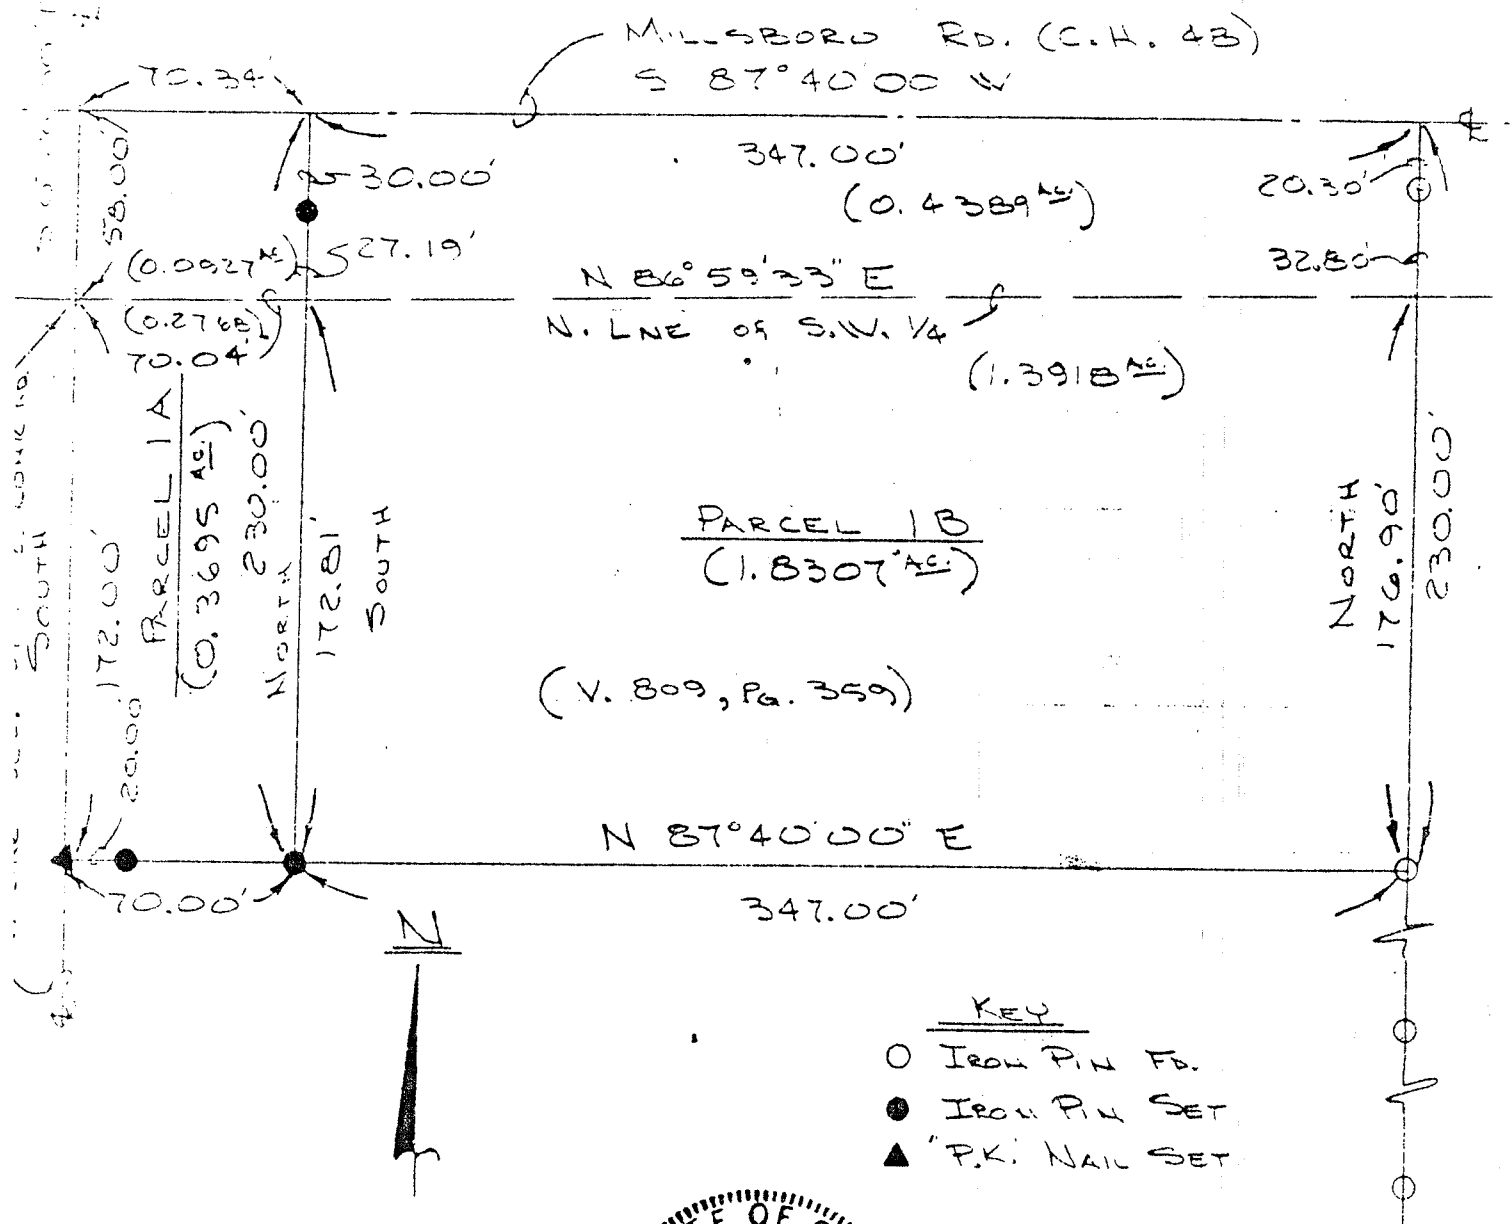 MILLSBORO RD. (C.H. 43)
S 87°40'00 W
70.34'
347.00'
58.00'
30.00'
(0.4389 AC.)
20.30'
(0.0927 AC.)
27.19'
32.80'
N 86°59'33" E
N. LNE OF S.W. 1/4
(0.2768)
70.04'
(1.3918 AC.)
SOUTH
172.00'
PARCEL 1A
(0.3695 AC.)
230.00'
NORTH
172.81'
SOUTH
PARCEL 1B
(1.8307 AC.)
NORTH
176.90'
230.00'
(V. 809, PG. 359)
20.00'
N 87°40'00" E
70.00'
347.00'
N
KEY
IRON PIN FD.
IRON PIN SET
"P.K." NAIL SET
OF